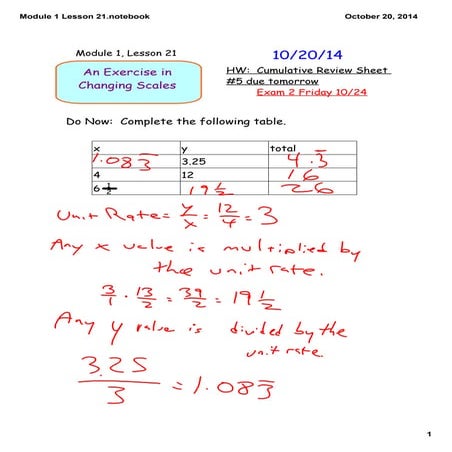 Module 1 Lesson 21.notebook
October 20, 2014
Module 1, Lesson 21
10/20/14
An Exercise in
Changing Scales
HW: Cumulative Review Sheet
#5 due tomorrow
Exam 2 Friday 10/24
Do Now: Complete the following table.
x y total
1.083̅ 3.25 4.3̅
4 12 16
6 1/2 19 1/2 26
Unit Rate = y/x = 12/4 = 3
Any x value is multiplied by
the unit rate.
3/1 · 13/2 = 39/2 = 19 1/2
Any y value is divided by the
unit rate.
3.25/3 = 1.083̅
1